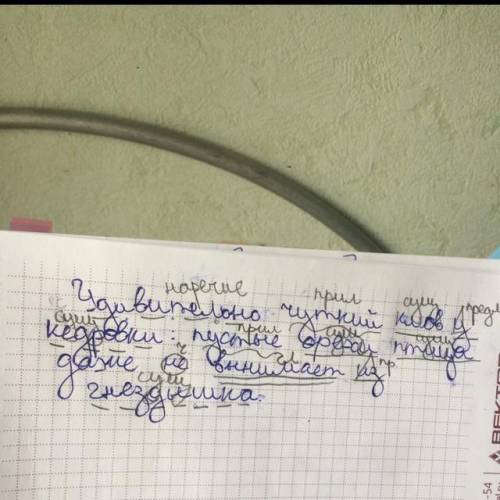 наречие прил сущ предл
Удивительно чуткий клюв у
сущ прил сущ сущ
кедровки: пустые орехи птица
ч гл пр.
даже не вынимает из
сущ
гнёздышка.